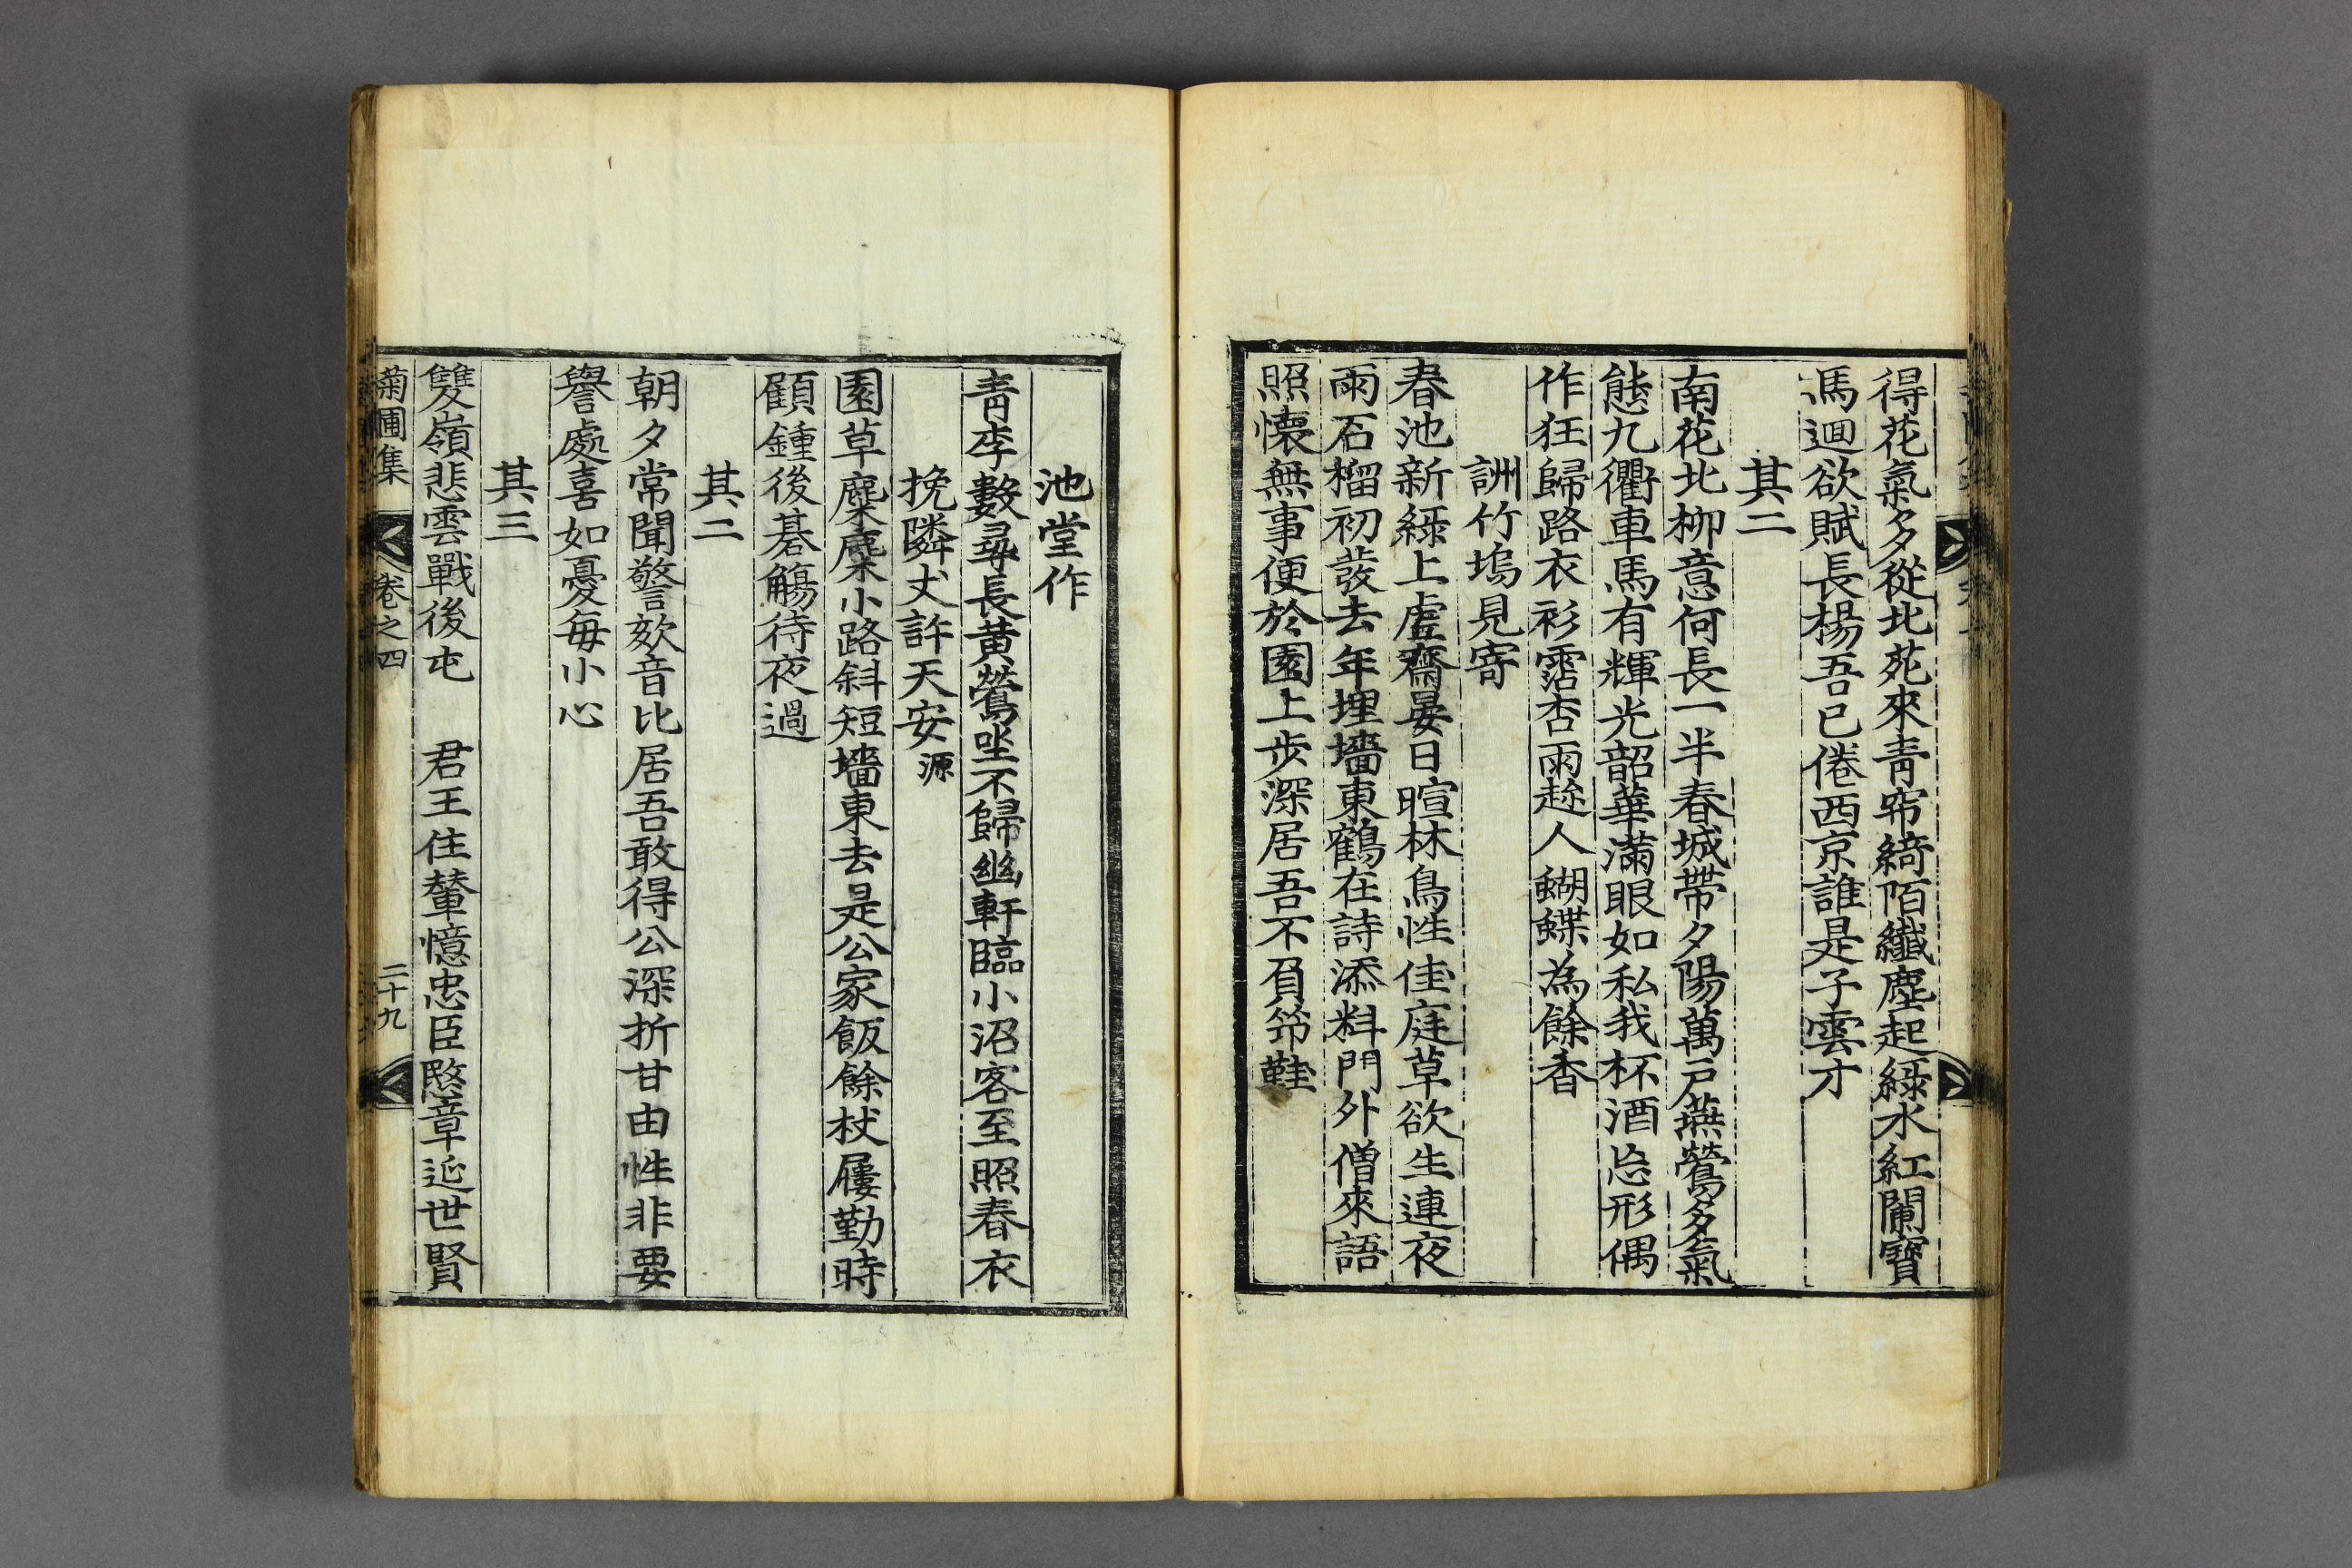 得花氣多從北苑來靑帘綺陌纖塵起綠水紅闌寶
馬迴欲賦長楊吾已倦西京誰是子雲才
其二
南花北柳意何長一半春城帶夕陽萬戶燕鶯多氣
態九衢車馬有輝光韶華滿眼如私我杯酒忘形偶
作狂歸路衣衫霑杏雨趂人蝴蝶為餘香
詶竹塢見寄
春池新綠上虛齋晏日暄林鳥性佳庭草欲生連夜
雨石榴初發去年埋墻東鶴在詩添料門外僧來語
照懷無事便於園上步深居吾不負笻鞋
池堂作
靑李數尋長黃鶯坐不歸幽軒臨小沼客至照春衣
挽隣丈許天安源
園草麋麋小路斜短墻東去是公家飯餘杖屨勤時
顧鍾後碁觴待夜過
其二
朝夕常聞警欬音比居吾敢得公深折甘由性非要
譽處喜如憂每小心
其三
雙嶺悲雲戰後屯　君王住輦憶忠臣愍章近世賢
菊圃集　卷之四　二十九